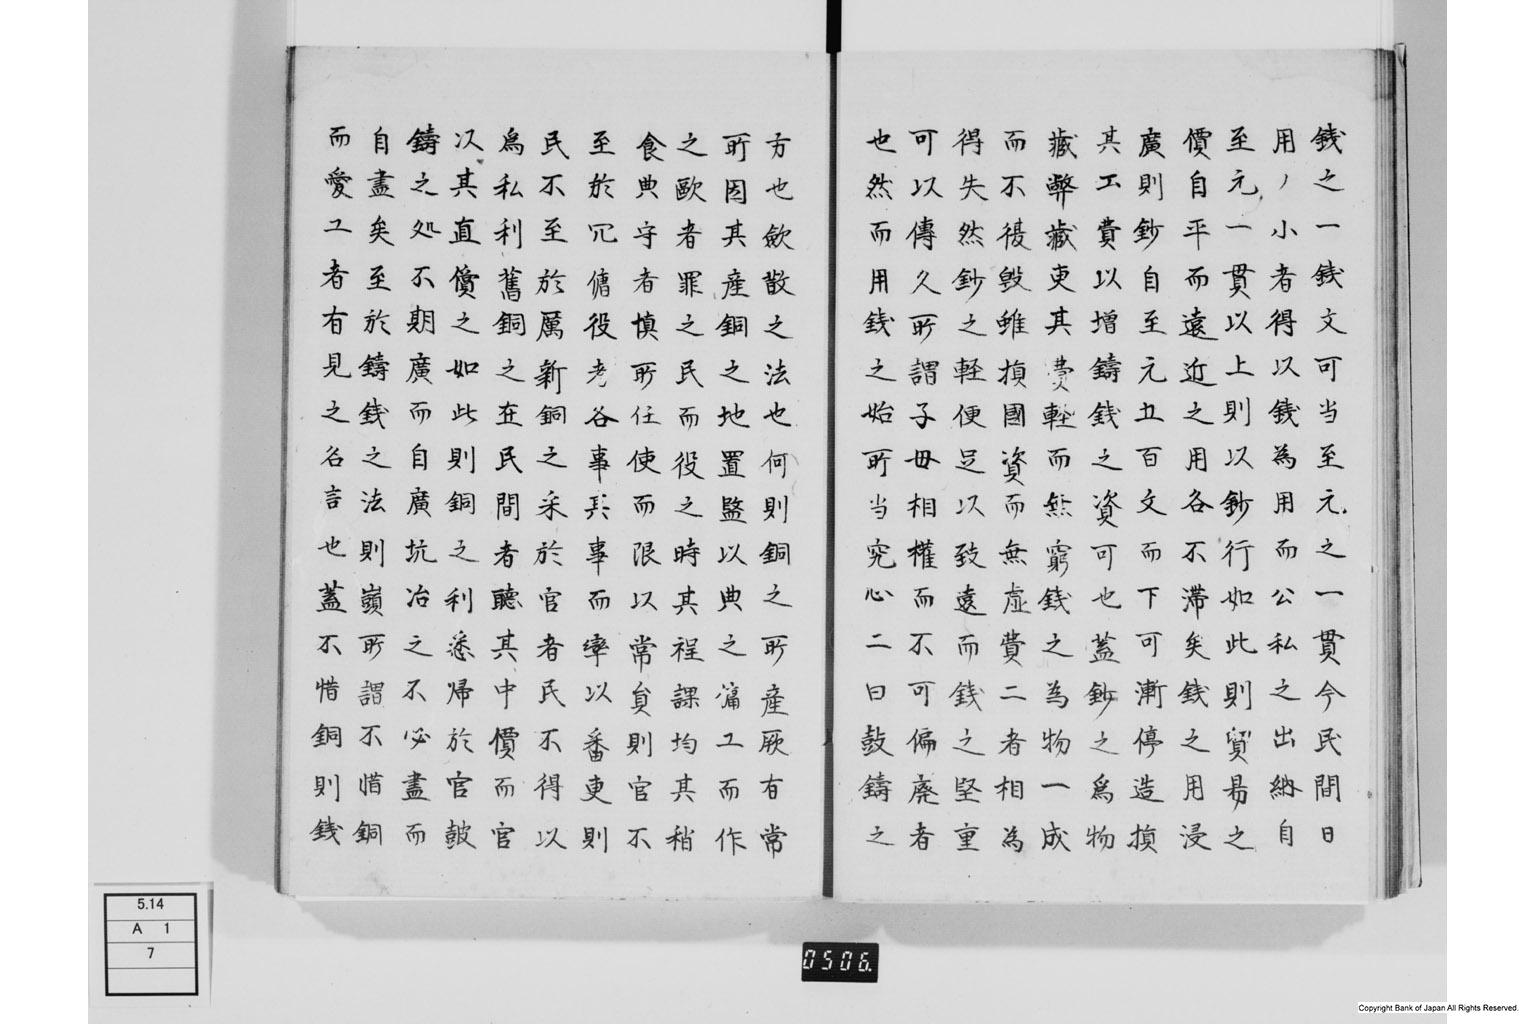 錢之一錢文可当至元之一貫今民間日
用ノ小者得以錢為用而公私之出納自
至元一貫以上則以鈔行如此則貿易之
價自平而遠近之用各不滯矣錢之用浸
廣則鈔自至元五百文而下可漸停造損
其工費以增鑄錢之資可也蓋鈔之為物
藏弊藏吏其費輕而無窮錢之為物一成
而不復毀雖損國資而無虛費二者相為
得失然鈔之軽便足以致遠而錢之堅重
可以傳久所謂子母相權而不可偏廃者
也然而用錢之始所当究心二曰鼓鑄之
方也斂散之法也何則銅之所產厥有常
所因其産銅之地置監以典之募工而作
之歐者罪之民而役之時其程課均其稍
食典守者慎所任使而限以常員則官不
至於冗傭役考各事其事而率以番更則
民不至於厲新銅之采於官者民不得以
爲私利舊銅之在民間者聽其中價而官
以其直償之如此則銅之利悉歸於官鼓
鑄之処不期廣而自廣坑冶之不必盡而
自盡矣至於鑄錢之法則嶺所謂不惜銅
而愛工者有見之名言也蓋不惜銅則錢
5.14
A 1
7
0506.
Copyright Bank of Japan All Rights Reserved.